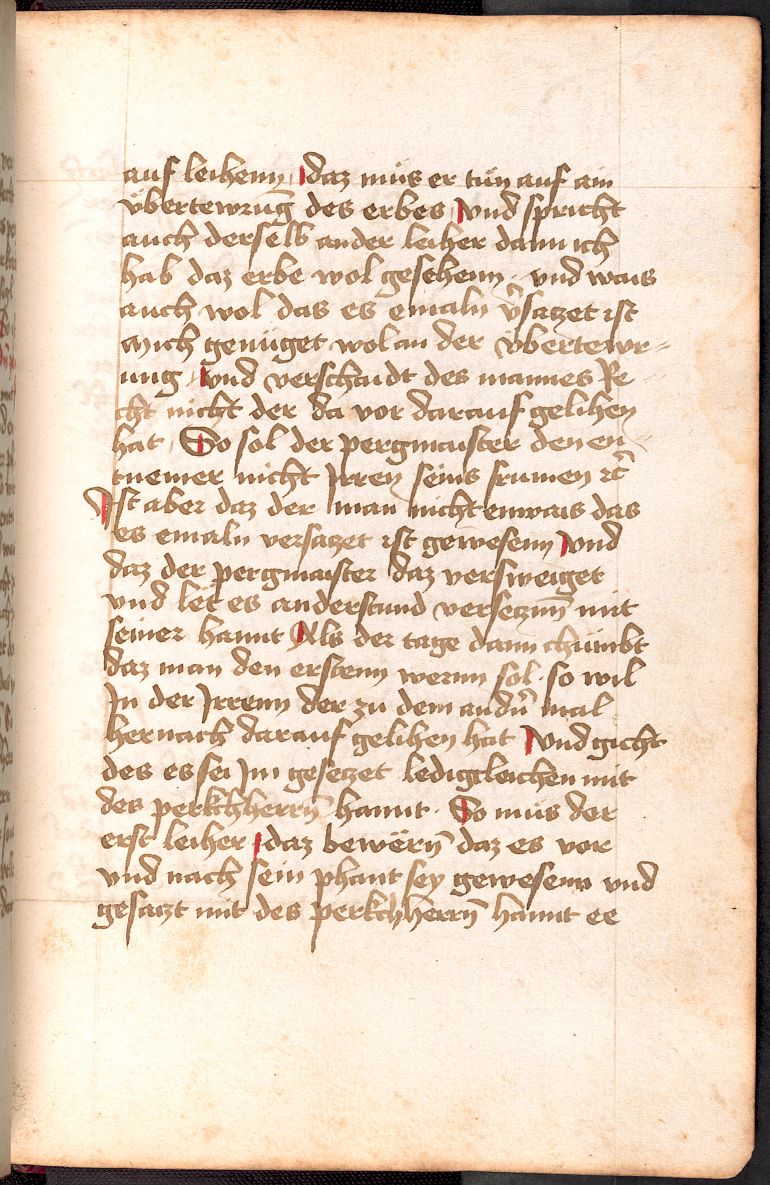 auf leihenn, daz müs er tün auf ain
übertewrũg des erbes, vnd spricht
auch derselb ander leiher dann ich
hab daz erbe wol gesehenn, vnd wais
auch wol das es emaln v̉satzet ist
Mich genüget wol an der übertewr-
ung, vnd verschaidt des mannes Re-
cht nicht der da vor darauf gelihen
hat, So sol der pergmaister den en-
tnemer nicht Jrren seins frumen ꝛc̃
Jst aber daz der man nicht enwais das
es emaln versatzet ist gewesenn, vnd
daz der pergmaister daz versweiget
vnd let es anderstund versetznn̄ mit
seiner hannt Als der tage dann chümbt
daz man den erstenn wernn sol. so wil
Jn der Jrrenn der zu dem andn̉ mal
hernach darauf gelihen hat, vnd gicht
des es sei Jm gesetzet ledigleichen mit
des perkchherrn̄ hannt. So müs der
erst leiher, daz bewërn̄ daz es vor
vnd nach sein phant sey gewesenn vnd
gesatzt mit des perkchherrn̄ hannt ee